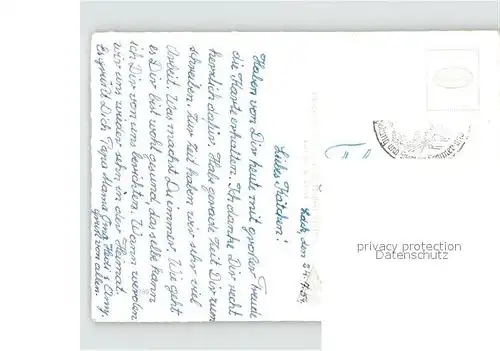 Lech, den 24.7.54.
Liebes Kätchen!
Haben von Dir heute mit großer Freude
die Karte erhalten. Ich danke Dir recht
herzlich dafür. Habe gerade Zeit Dir zum
schreiben. Zur Zeit haben wir sehr viel
Arbeit. Was machst Du immer. Wie geht
es Dir bist wohl gesund, dasselbe kann
ich Dir von uns berichten. Wann werden
wir uns wieder sehn in der Heimat.
Es grüßt Dich Papa Mama
gruß von allen.
privacy protection
WATERMARK